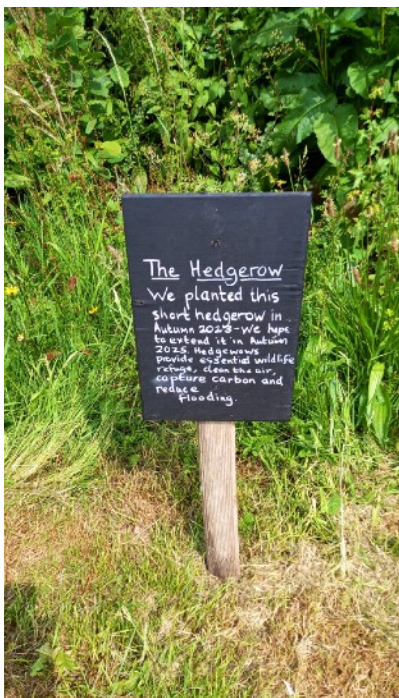 The Hedgerow
We planted this
short hedgerow in
Autumn 2023-We hope
to extend it in Autumn
2025. Hedgerows
provide essential wildlife
refuge, clean the air,
capture carbon and
reduce
flooding.